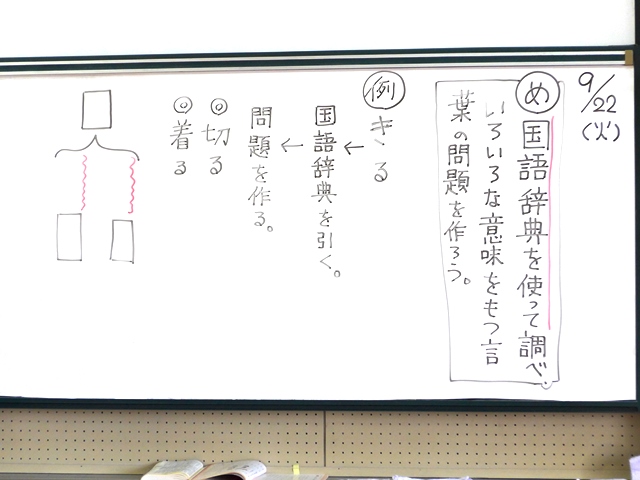 9/22
(火)
め 国語辞典を使って調べ、
いろいろな意味をもつ言
葉の問題を作ろう。
例 きる
←
国語辞典を引く。
←
問題を作る。
◎切る
◎着る